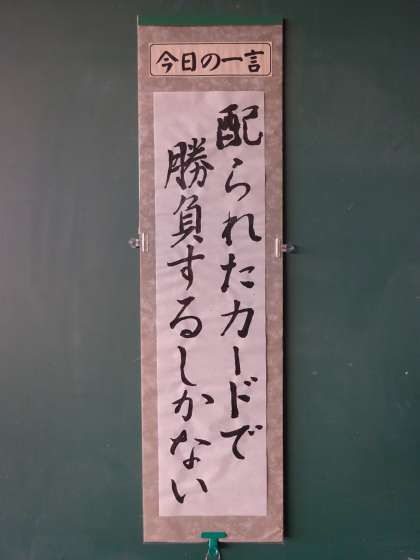 今日の一言
配られたカードで
勝負するしかない